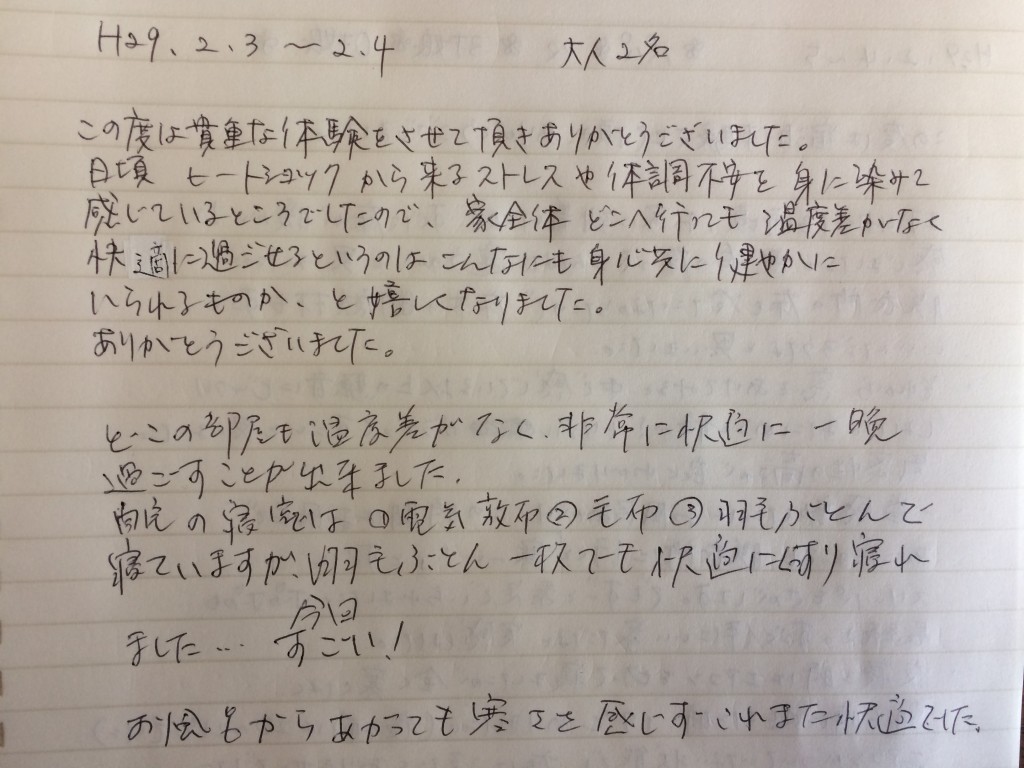 H29.2.3〜2.4 大人2名
この度は貴重な体験をさせて頂きありがとうございました。
日頃 ヒートショックから来るストレスや体調不安を身に染みて
感じているところでしたので、家全体どこへ行っても温度差がなく
快適に過ごせるというのはこんなにも身心共に健やかに
いられるものか、と嬉しくなりました。
ありがとうございました。
どこの部屋も温度差がなく、非常に快適に一晩
過ごすことが出来ました。
自宅の寝室は①電気敷布②毛布③羽毛ぶとんで
寝ていますが、羽毛ぶとん一枚でも快適にぐっすり寝れ
今回
ました… すごい!
お風呂からあがっても寒さを感じず、これまた快適でした。